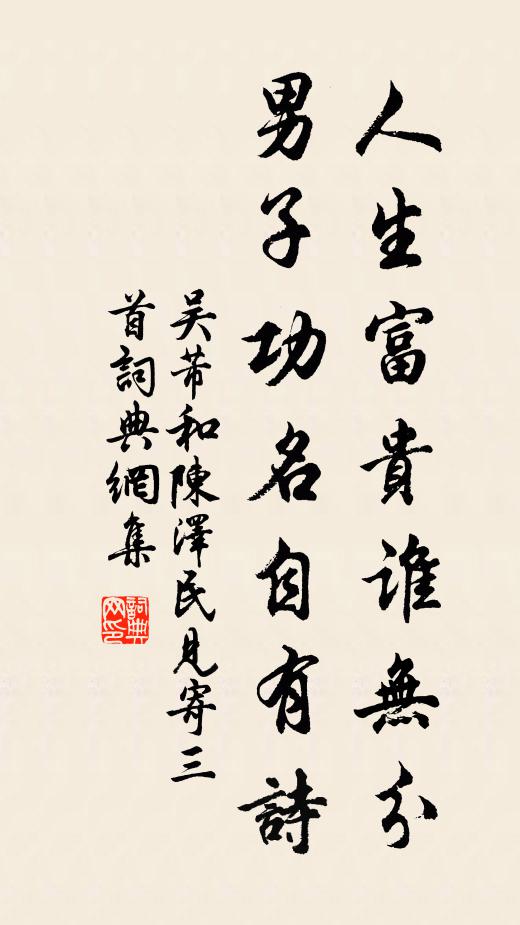 人生富貴誰無分
男子功名自有詩
吴芾和陳澤民見寄三
首詞典網集
詞典
网印